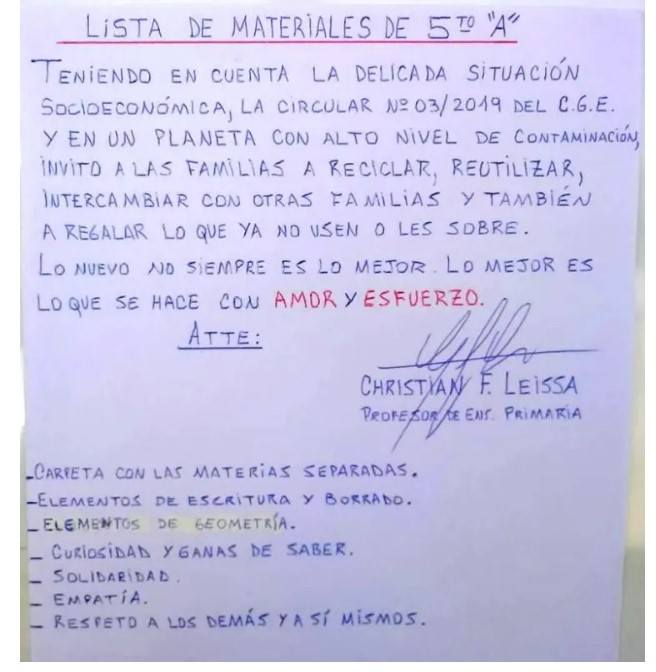 LISTA DE MATERIALES DE 5TO "A"
TENIENDO EN CUENTA LA DELICADA SITUACIÓN
SOCIOECONÓMICA, LA CIRCULAR Nº 03/2019 DEL C.G.E.
Y EN UN PLANETA CON ALTO NIVEL DE CONTAMINACIÓN,
INVITO A LAS FAMILIAS A RECICLAR, REUTILIZAR,
INTERCAMBIAR CON OTRAS FAMILIAS Y TAMBIÉN
A REGALAR LO QUE YA NO USEN O LES SOBRE.
LO NUEVO NO SIEMPRE ES LO MEJOR. LO MEJOR ES
LO QUE SE HACE CON AMOR Y ESFUERZO.
ATTE:
CHRISTIAN F. LEISSA
PROFESOR DE ENS. PRIMARIA
-CARPETA CON LAS MATERIAS SEPARADAS.
-ELEMENTOS DE ESCRITURA Y BORRADO.
- ELEMENTOS DE GEOMETRÍA.
- CURIOSIDAD Y GANAS DE SABER.
- SOLIDARIDAD.
- EMPATÍA.
- RESPETO A LOS DEMÁS Y A SÍ MISMOS.